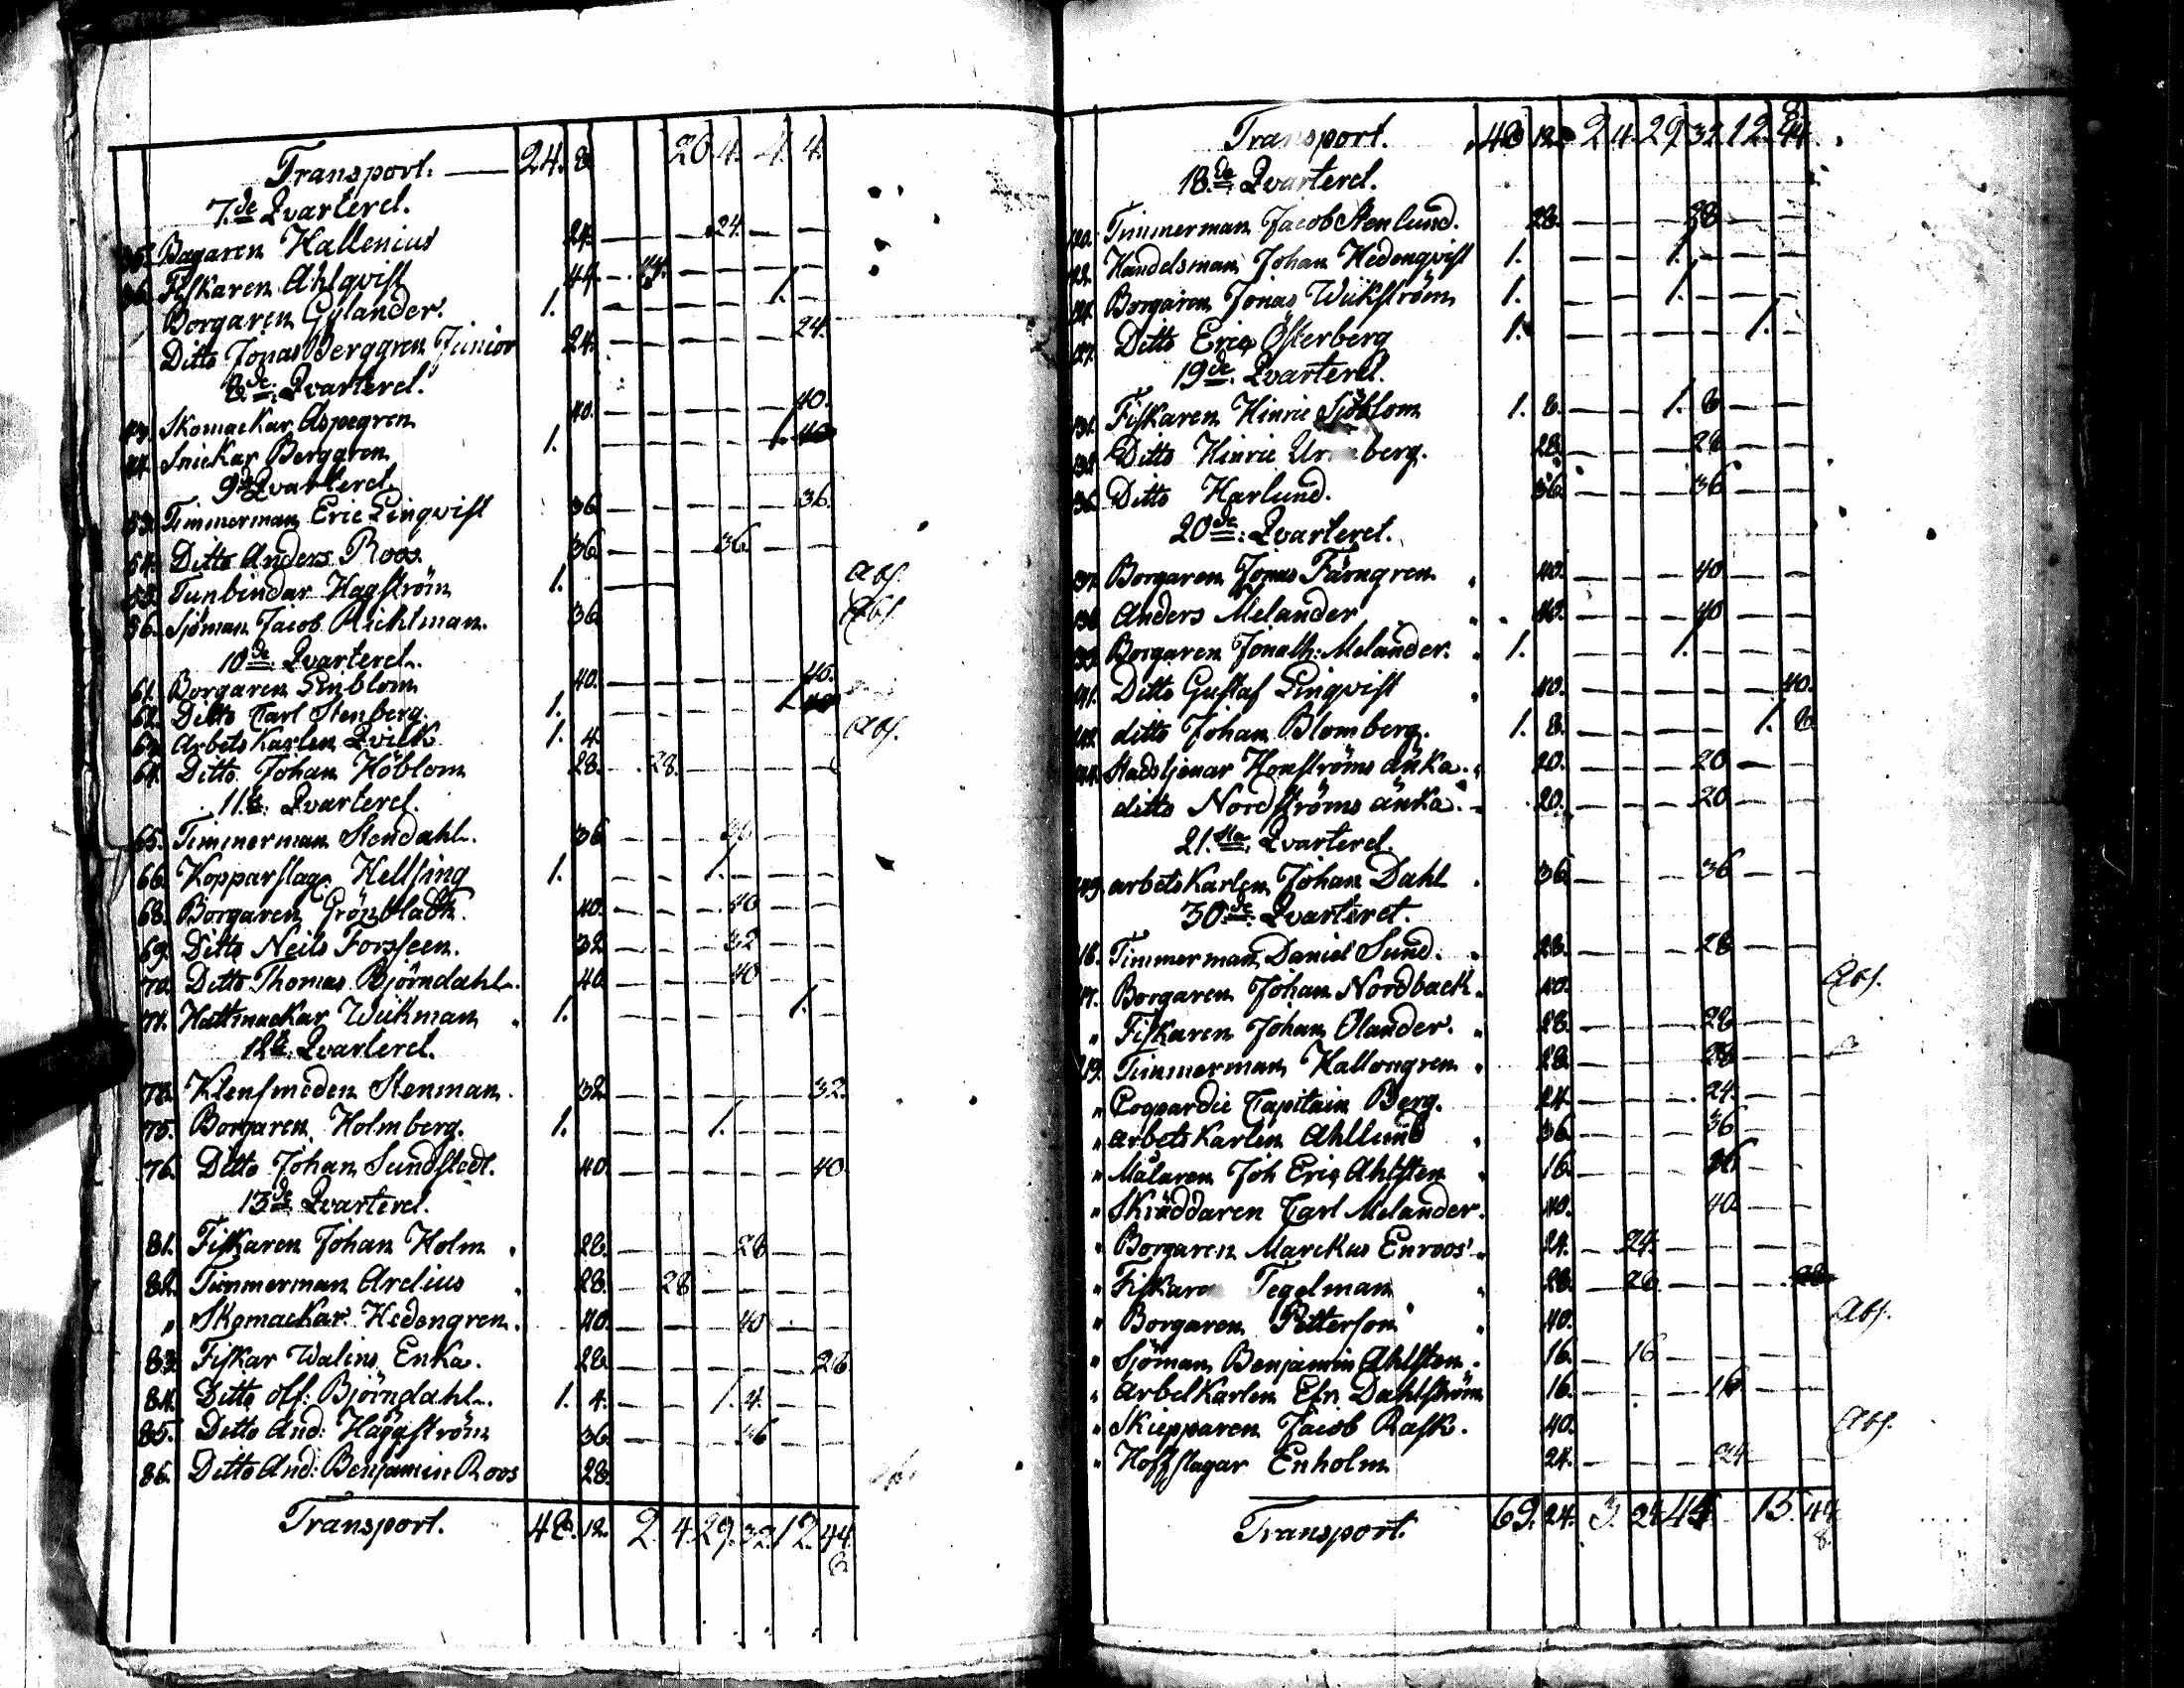 Transport. — 24. 8. 20. 4. 4. 4.
7.de Qvarteret.
35. Bagaren Hallenius 24. — — — 24. — —
36. Fiskaren Ahlqvist 44. — 44. — — — —
Borgaren Gylander. 1. — — — — 1. —
Ditto Jonas Berggren Junior 24. — — — — — 24.
8.de Qvarteret.
43. Skomackar Aspegren 40. — — — — — 40.
44. Snickar Berggren 1. — — — — 1.
9.de Qvarteret
53. Timmerman Eric Linqvist 36. — — — — — 36.
54. Ditto Anders Roos. 36. — — — 36. — —
55. Tunbindar Hagström 1. — — Abs.
56. Sjöman Jacob Richtman. 36. Abs.
10.de Qvarteret.
61. Borgaren Linblom 40. — — — — — 40.
62. Ditto Carl Stenberg. 1. — — — — 1.
63. Arbets Karlen Qvick 1. 4. Abs.
64. Ditto Johan Höblom 28. — 28. — — — —
11.te Qvarteret.
65. Timmerman Stendahl. 36 — — — 36 — —
66. Kopparslag. Hellsing 1. — — 1. — — —
68. Borgaren Grönbladh. 40. — — — 40 — —
69. Ditto Neils Forsseen. 32 — — — 32 — —
70. Ditto Thomas Björndahl. 40. — — — 40 — —
71. Hattmackar Wickman 1. — — — — 1. —
12.te Qvarteret.
72. Klensmeden Stenman. 32. — — — — — 32.
75. Borgaren Holmberg. 1. — — 1. — — —
76. Ditto Johan Sundstedt. 40. — — — — — 40.
13.de Qvarteret.
81. Fiskaren Johan Holm 28. — — — 28 — —
82. Timmerman Arelius 28. — 28 — — — —
„ Skomackar Hedengren. 40. — — — 40 — —
83. Fiskar Walins Enka. 28. — — — — — 28
84. Ditto Olf: Björndahl. 1. 4. — — 1. 4. — —
85. Ditto And: Häggström 36. — — — 36 — —
86. Ditto And: Benjamin Roos 28.
Transport. 48. 12. 2. 4. 29. 32. 12. 44.
Transport. 48 12. 2 4. 29 32. 12. 44.
18.de Qvarteret.
120. Timmerman Jacob Stenlund. 28. — — — 28 — —
Handelsman Johan Hedenqvist 1. — — 1. — — —
Borgaren Jonas Wickström 1. — — 1. — — —
127. Ditto Eric Österberg 1. — — — — 1.
19.de Qvarteret.
131. Fiskaren Hinric Sjöblom 1. 8. — — 1. 8 — —
Ditto Hinric berg. 28. — — — 28 — —
136. Ditto Harlund. 36. — — — 36 — —
20.de Qvarteret.
137. Borgaren Jonas Färngren 40. — — — 40 — —
138. Anders Melander 40. — — — 40 — —
139. Borgaren Jonath: Melander. 1. — — 1. — — —
141. Ditto Gustaf Linqvist 40. — — — — — 40.
142. ditto Johan Blomberg. 1. 8. — — — — 1. 8.
144. Stadstjenar Honströms änka. 20. — — — 20 — —
ditto Nordströms änka. 20. — — — 20 — —
21.sta Qvarteret.
149. arbetsKarlen Johan Dahl 36. — — — 36 — —
30.de Qvarteret.
216. Timmerman Daniel Sund. 28. — — — 28 — —
217. Borgaren Johan Nordback. 40. Abs.
„ Fiskaren Johan Olander. 28. — — — 28 — —
219. Timmerman Hallongren 28. — — — 28 — —
„ Cogvardie Capitain Berg. 24. — — — 24. — —
„ arbetsKarlen Ahllund 36. — — — 36 — —
„ Målaren Joh Eric Ahlsten 16. — — — 16 — —
„ Skräddaren Carl Melander. 40. 40. — —
„ Borgaren Marckus Enroos 24. — 24. — — — —
„ Fiskare Tegelman 28. — 28. — — —
„ Borgaren Petterson 40. Abs.
„ Sjöman Benjamin Ahlsten. 16. — 16. — — — —
„ ArbetKarlen Efr. Dahlström 16. — — — 16 — —
„ Skiepparen Jacob Rask. 40. Abs.
„ Hoffslagar Enholm 24. — — — 24 — —
Transport. 69. 24. 3. 24 44. 13. 44
8.